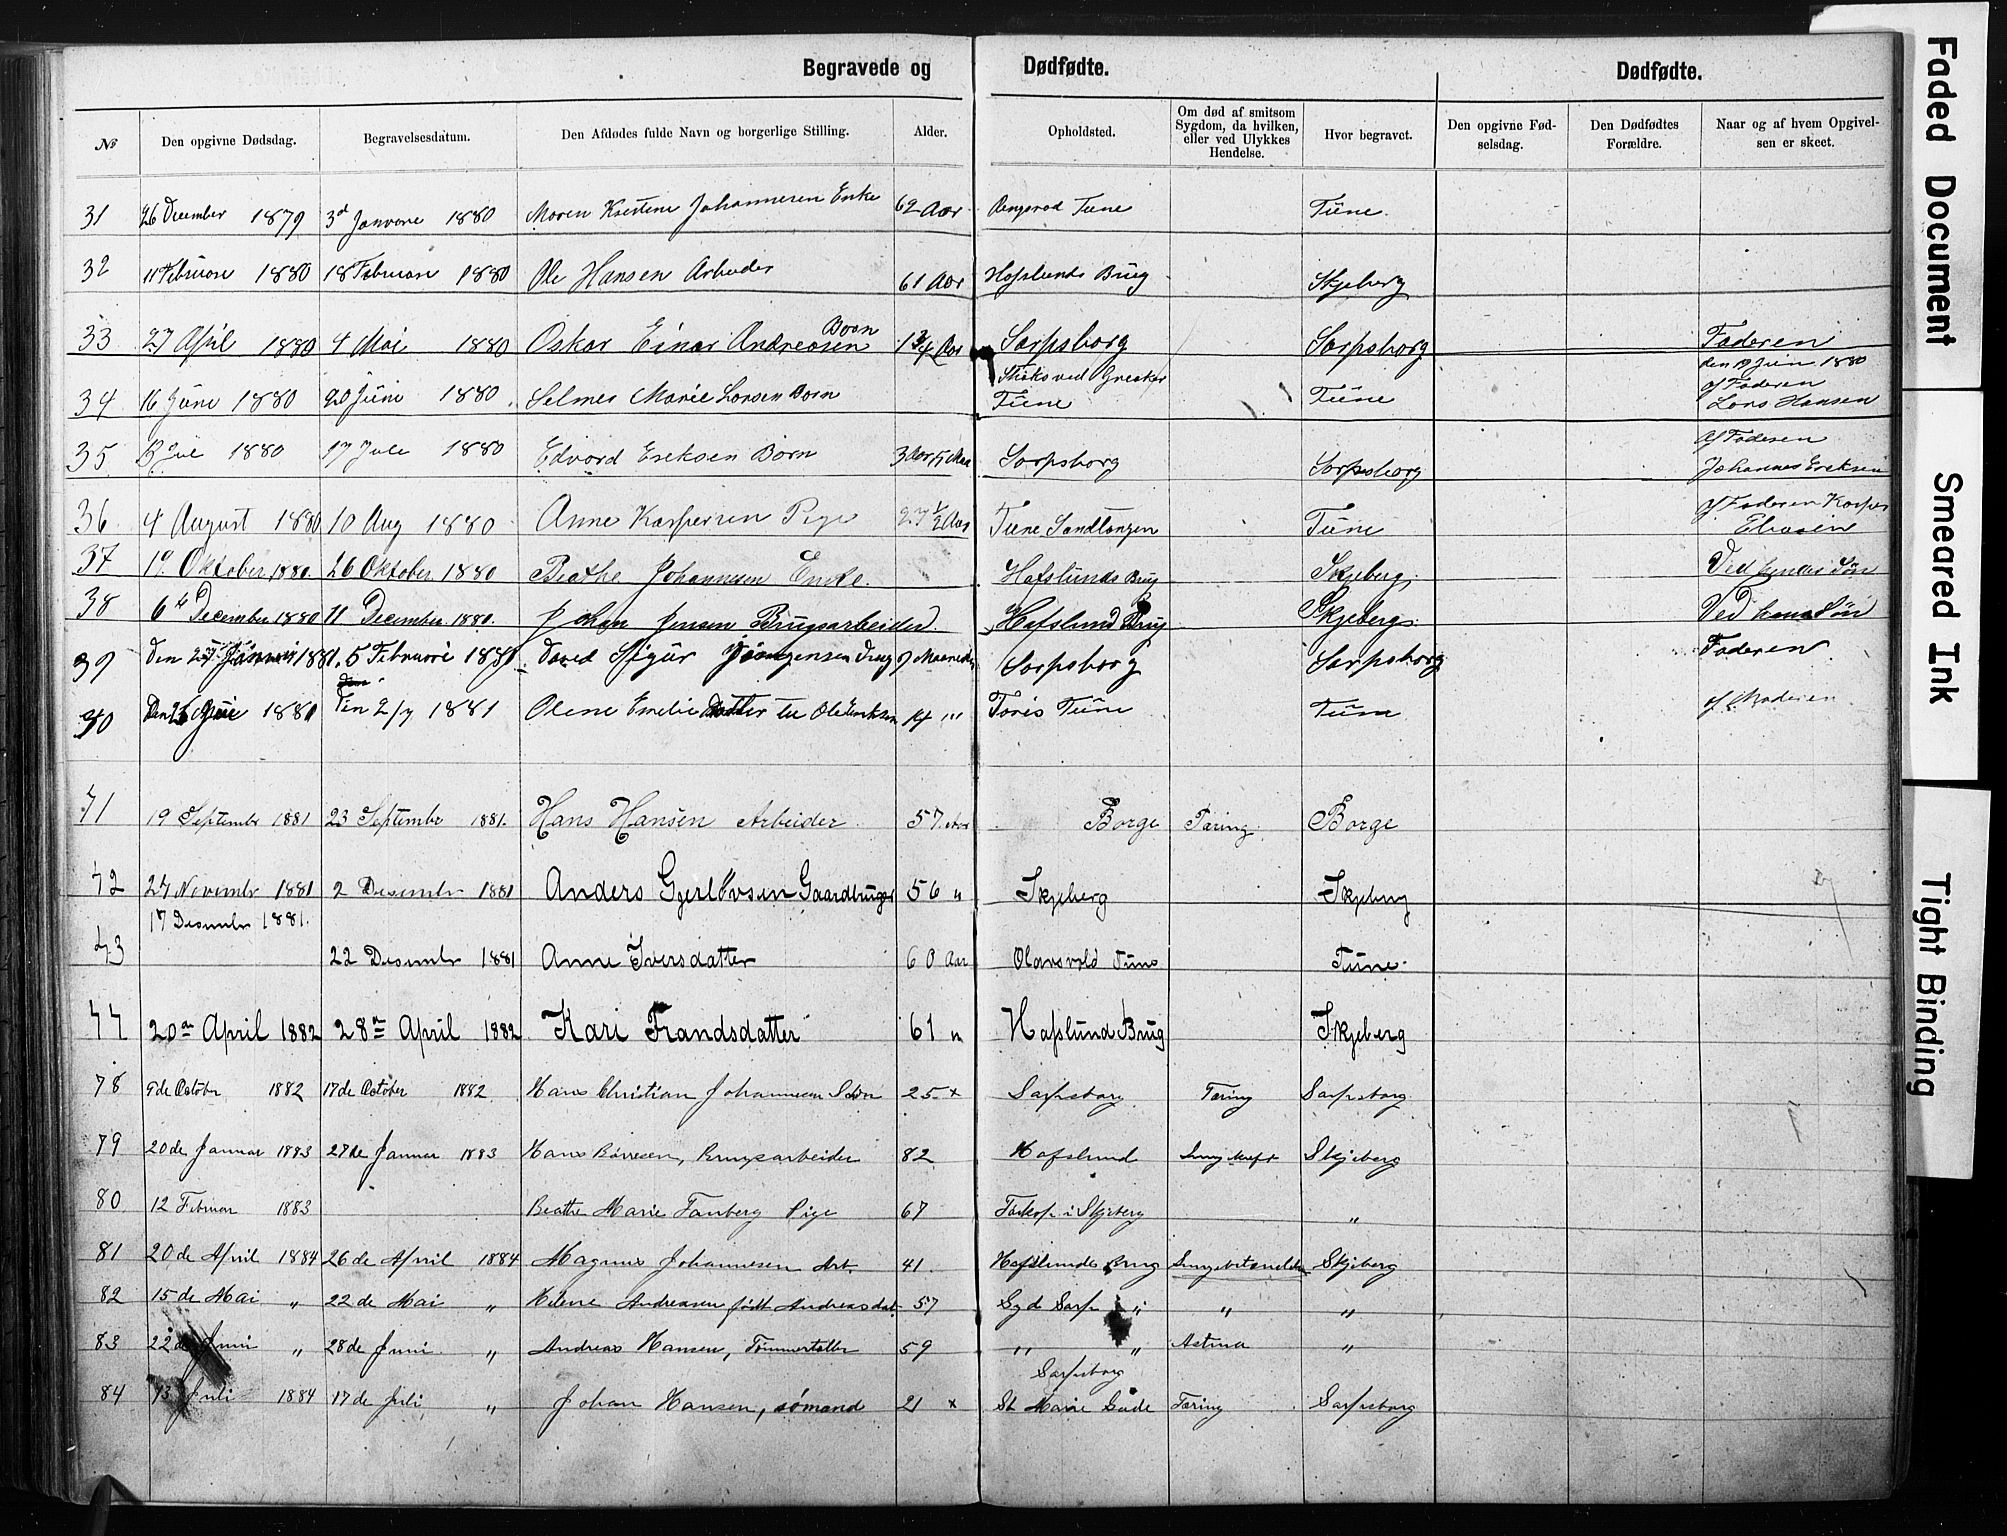 Begravede og Dødfødte. Dødfødte.
№ | Den opgivne Dødsdag. | Begravelsesdatum. | Den Afdødes fulde Navn og borgerlige Stilling. | Alder. | Opholdsted. | Om død af smitsom Sygdom, da hvilken, eller ved Ulykkes Hendelse. | Hvor begravet. | Den opgivne Fødselsdag. | Den Dødfødtes Forældre. | Naar og af hvem Opgivelsen er skeet.
31 26 December 1879 3d Januare 1880 Maren Kristine Johannesen Enke 62 Aar Tune Tune.
32 11 Februar 1880 18 Februar 1880 Ole Hansen Arbeder 61 Aar Hafslunds Brug Skjeberg
33 27 April 1880 4 Mai 1880 Oskar Einar Andreasen Barn 1 3/4 Aar Sarpsborg Sarpsborg Faderen
34 16 June 1880 20 June 1880 Selmer Marie Larsen Barn Tune Tune den 19 Juni 1880 af Faderen Lars Hansen
35 13 Jul 1880 17 Jule 1880 Edvard Eriksen Barn 3 Aar Sarpsborg Sarpsborg Af Faderen Johannes Ereksen
36 4 August 1880 10 Aug 1880 Anne Kaspersen Pige 27 1/2 Aar Tune Sandtangen Tune af Faderen Kasper
37 19 Oktober 1880. 26 Oktober 1880 Beathe Johannesen Enke. Hafslunds Brug Skjeberg Ved hendes Søn
38 6te December 1880 11 December 1880. Johan Jensen Brugsarbeider Hafslund Brug Skjeberg Ved hans Søn
39 Den 27 Januar 1881. 5 Februare 1881 David Sigur Jørgensen Dreng 9 Maaneder Sarpsborg Sarpsborg Faderen
40 Den 25 Juni 1881 Den 2/7 1881 Olene Emelie Datter til Ole Eriksen 14 Tune Tune af Moderen
71 19 Septembr 1881 23 Septembr 1881. Hans Hansen Arbeider 57. Aar Borge Tæring Borge
72 27 Novembr 1881 2 Desembr 1881 Anders Gjerløvsen Gaardbruger 56 " Skjeberg Skjeberg
17 Desembr 1881.
73 22 Desembr 1881 Anne Iversdatter 60 Aar Olavsvold Tune Tune.
77 20de April 1882 28de April 1882 Kari Frandsdatter 61 " Hafslund Brug Skjeberg
78 9de October 1882 17de October 1882 Hans Christian Johannesen 25 × Sarpsborg Tæring Sarpsborg
79 20de Januar 1883 27de Januar 1883 Hans Børresen, Brugsarbeider 82 Hafslund Skjeberg
80 12 Februar 1883 Beathe Marie Tanberg Pige 67 i Skjeberg "
81 20de April 1884 26de April 1884 Magnus Johannesen Arb. 41. Hafslunds Brug Lungebetændelse Skjeberg
82 15de Mai " 22de Mai " Helene Andreasen født Andreasdat. 57 " " "
83 22de Juni " 28de Juni " Andreas Hansen, 59 " " Astma "
84 13 Juli 1884 17de Juli " Johan Hansen, sømand 21 × Sarpsborg St Marie Gade Tæring Sarpsborg
Faded Document
Smeared Ink
Tight Binding